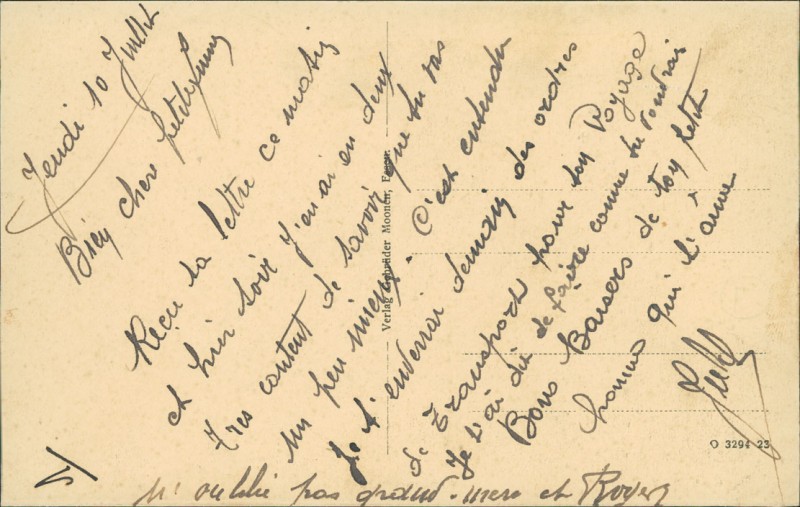 Jeudi 10 Juillet
Bien chere petite
Reçu ta lettre ce matin
et hier soir j'en ai eu deux
Tres content de savoir que tu vas
un peu mieux. C'est entendu
Je t'enverrai demain des ordres
de Transport pour ton Voyage
Je t'ai dit de faire comme tu voudrai
Bons Baisers de ton petit
homme qui t'aime
N'oublie pas grand-mere et Roger
Verlag Schröder Moondr,
O 3294 23